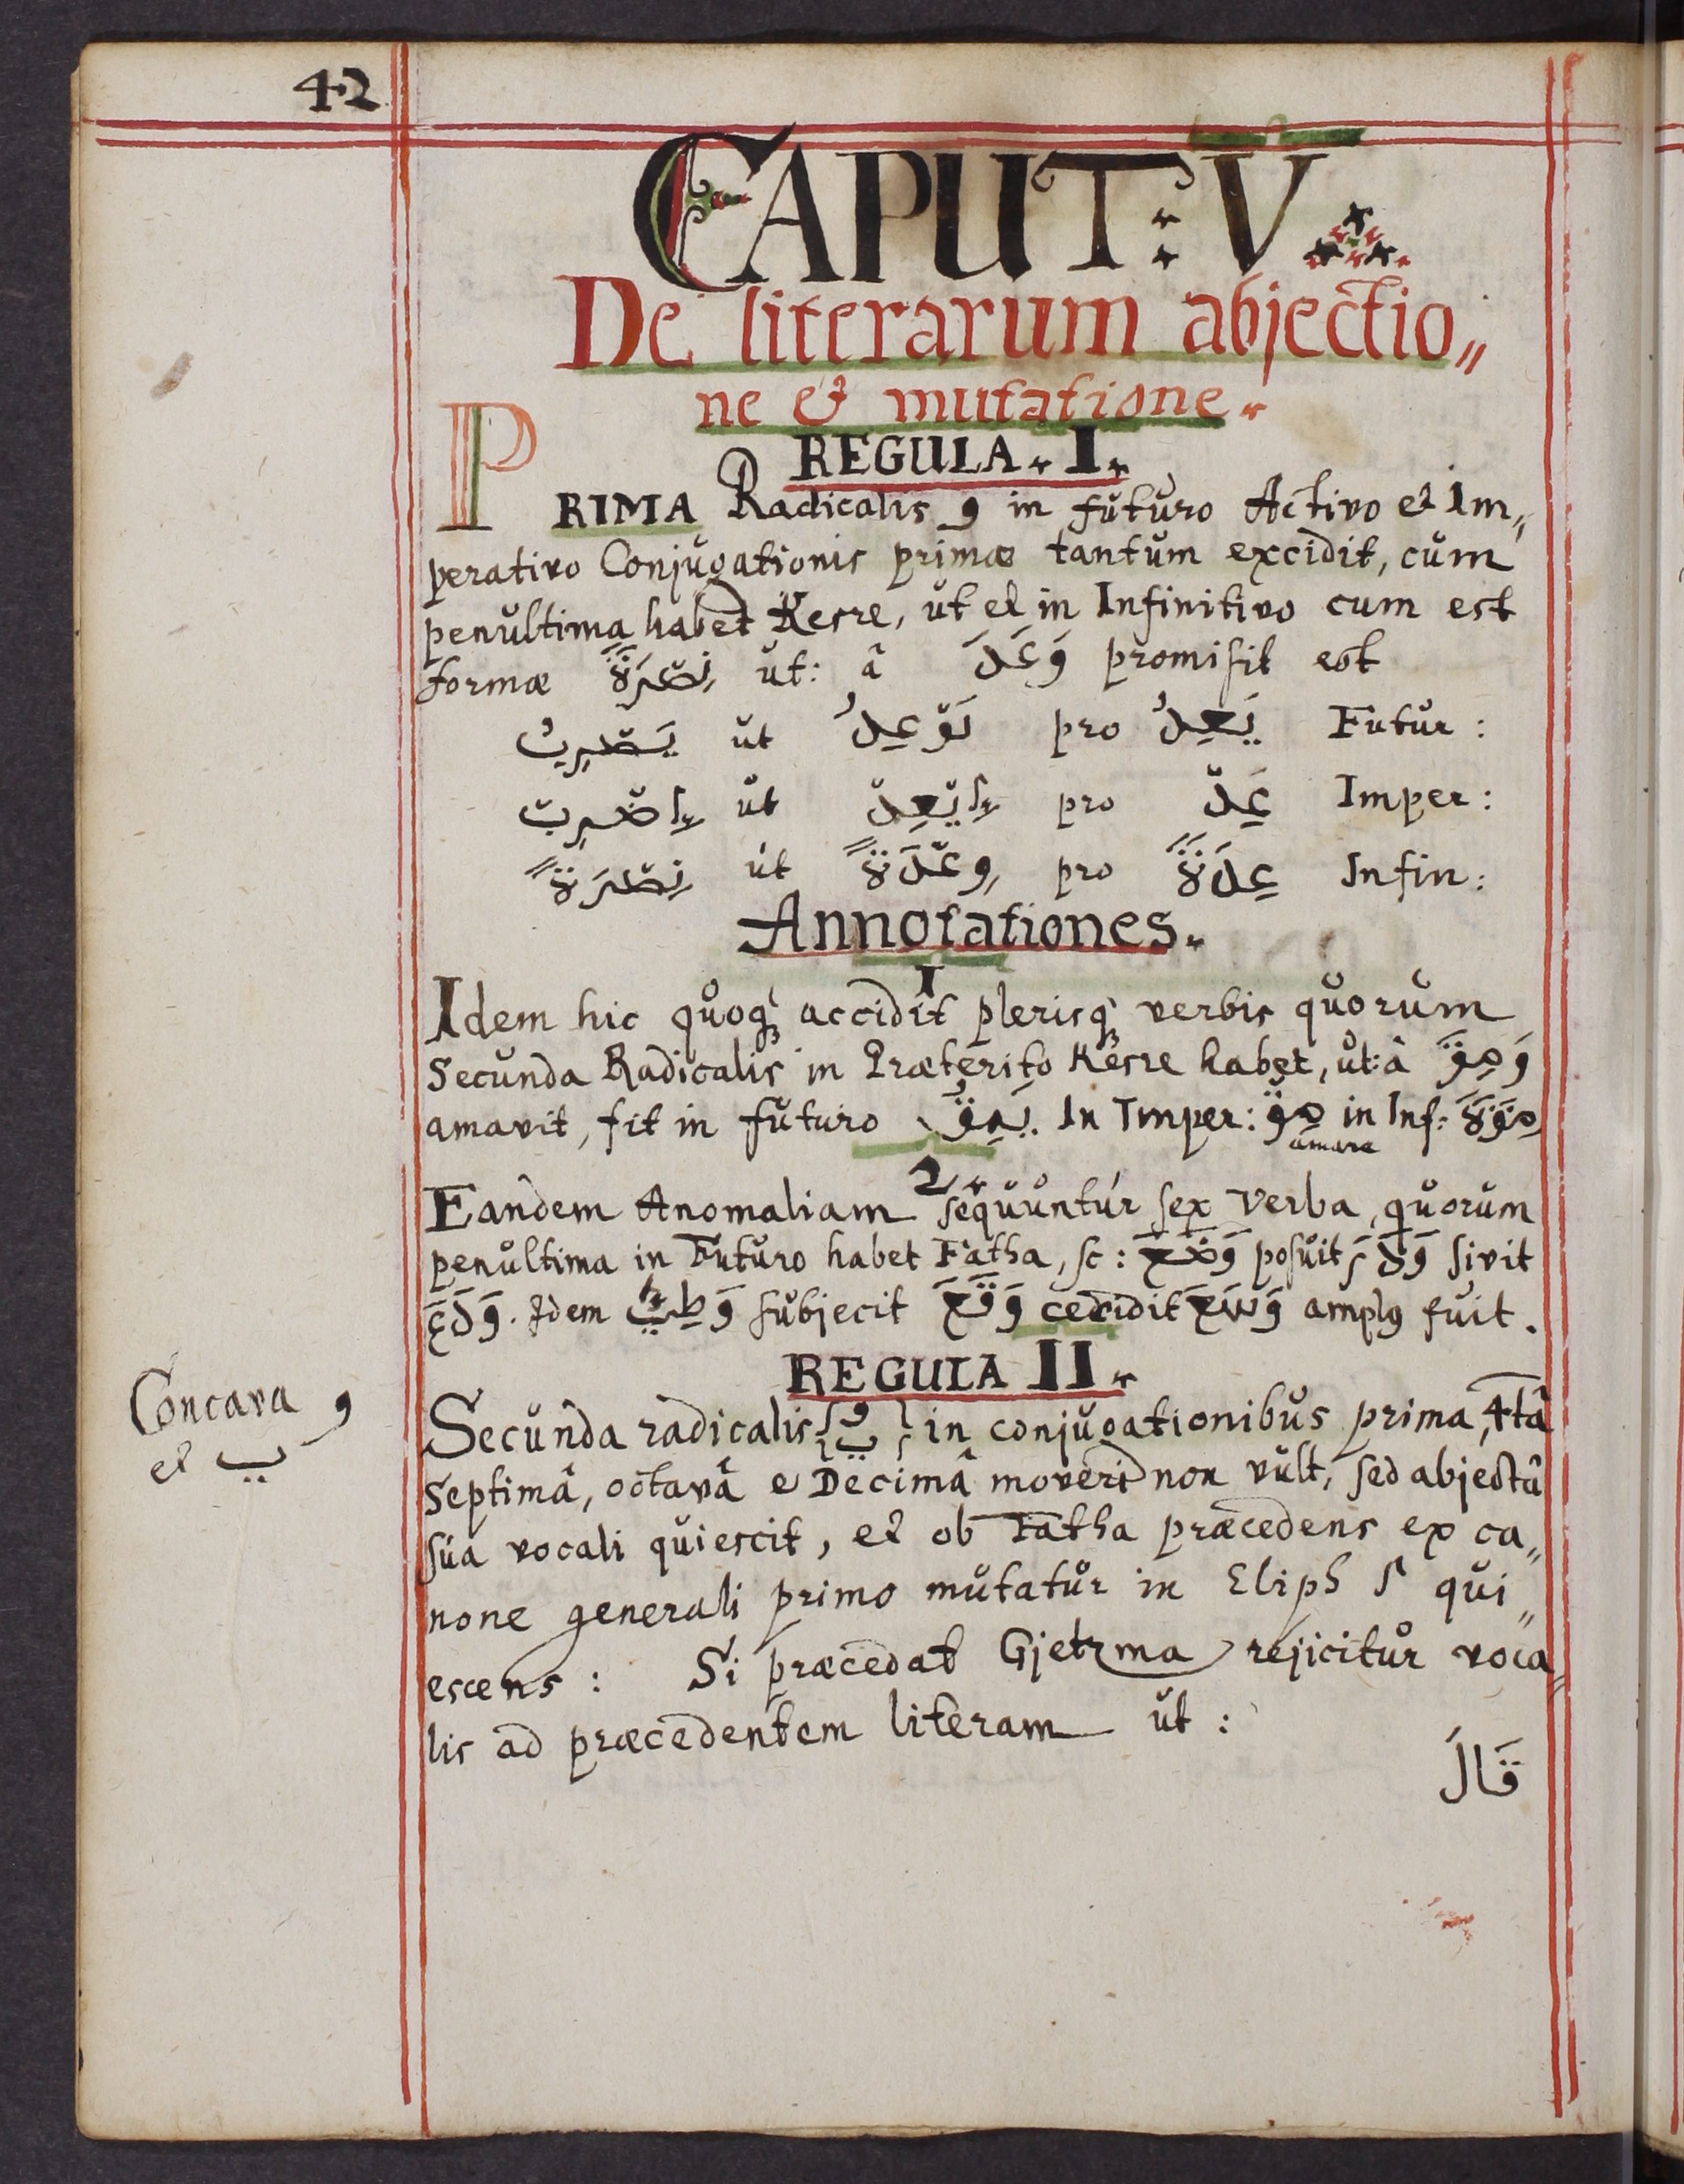 42
CAPUT: V.
De literarum abjectio„
ne & mutatione.
REGULA. I.
PRIMA Radicalis و in futuro Activo et Im„
perativo Conjugationis primæ tantum excidit, cum
penultima habet Kesre, ut et in Infinitivo cum est
formæ نِصْرَةٌ ut: â وَعَدَ promisit est
Futur: يَعِدُ pro يَوْعِدُ ut يَضْرِبُ
Imper: عِدْ pro إِيْعِدْ ut إِضْرِبْ
Infin: عِدَةً pro وِعْدَةً ut نِصْرَةً
Annotationes.
I
Idem hic quoq; accidit plerisq; verbis quorum
Secunda Radicalis in Præterito Kesre habet, ut: â وَمِقَ
amavit, fit in futuro يَمِقُ. In Imper: مِقْ in Inf: مِقَةً
amare
2.
Eandem Anomaliam sequuntur sex verba, quorum
penultima in Futuro habet Fatha, sc: وَضَعَ posuit, وَدَعَ sivit
وَدَعَ. Idem subjecit وَقَعَ cecidit وَسَعَ amplꝰ fuit.
REGULA II.
Concava و
et ي
Secunda radicalis {و ي} in conjugationibus prima, 4tâ
septimâ, octavâ e Decimâ moveri non vult, sed abjectâ
sua vocali quiescit, et ob Fatha præcedens ex ca„
none generali primo mutatur in Eliph ا qui„
escens: Si præcedat Gjetzma rejicitur voca„
lis ad præcedentem literam ut:
قَالَ